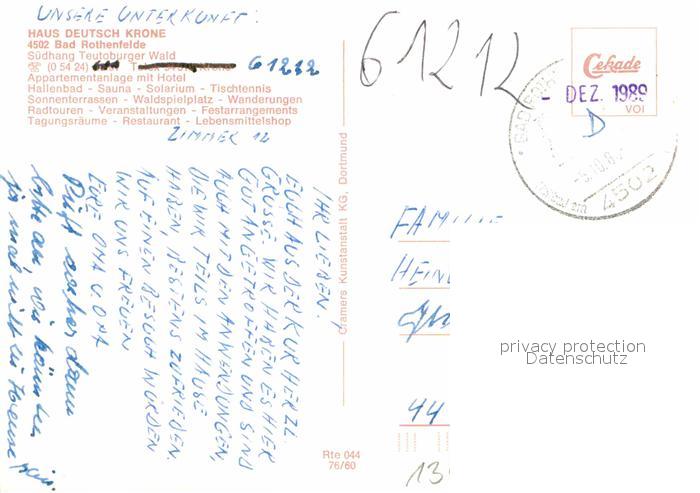 UNSERE UNTERKUNFT:
HAUS DEUTSCH KRONE
4502 Bad Rothenfelde
Südhang Teutoburger Wald
☏ (0 54 24) 61212
Appartementanlage mit Hotel
Hallenbad - Sauna - Solarium - Tischtennis
Sonnenterrassen - Waldspielplatz - Wanderungen
Radtouren - Veranstaltungen - Festarrangements
Tagungsräume - Restaurant - Lebensmittelshop
ZIMMER 12
61212
Cekade
VOI
- DEZ. 1989
D
4502
IHR LIEBEN,
EUCH AUS DER KUR HERZL.
GRÜSSE. WIR HABEN ES HIER
GUT ANGETROFFEN UND SIND
AUCH MIT DEN ANWENDUNGEN,
DIE WIR TEILS IM HAUSE
HABEN, BESTENS ZUFRIEDEN.
AUF EINEN BESUCH WÜRDEN
WIR UNS FREUEN
EURE OMA U. OPA
Ruft vorher dann
bitte an, wir könnten
ja mal nicht zu Hause sein.
Cramers Kunstanstalt KG, Dortmund
Rte 044
76/60
FAMILIE
HEIN
44
13
privacy protection
Datenschutz